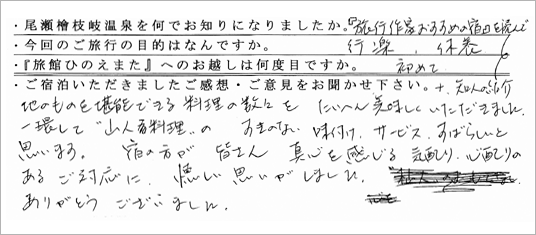 ・尾瀬檜枝岐温泉を何でお知りになりましたか。『旅行作家おすすめの宿』を読んで
・今回のご旅行の目的はなんですか。 行楽、休養
・『旅館ひのえまた』へのお越しは何度目ですか。 初めて
・ご宿泊いただきましたご感想・ご意見をお聞かせ下さい。 +、知人の紹介
地のものを堪能できる料理の数々を たいへん美味しくいただきました。
一環して“山人料理”の すきのない 味付け、サービス、すばらしいと
思います。 宿の方が 皆さん 真心を感じる 気配り、心配りの
あるご対応に、嬉しい思いがしました。
ありがとう ございました。